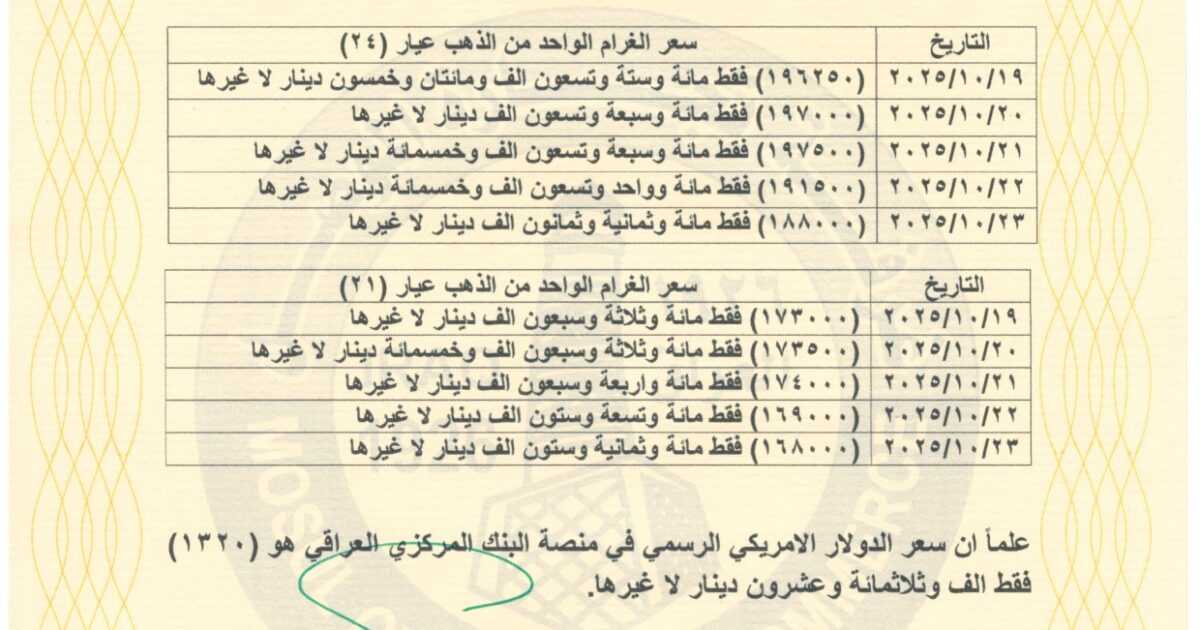 التاريخ سعر الغرام الواحد من الذهب عيار (٢٤)
٢٠٢٥/١٠/١٩ (١٩٦٢٥٠) فقط مائة وستة وتسعون الف ومائتان وخمسون دينار لا غيرها
٢٠٢٥/١٠/٢٠ (١٩٧٠٠٠) فقط مائة وسبعة وتسعون الف دينار لا غيرها
٢٠٢٥/١٠/٢١ (١٩٧٥٠٠) فقط مائة وسبعة وتسعون الف وخمسمائة دينار لا غيرها
٢٠٢٥/١٠/٢٢ (١٩١٥٠٠) فقط مائة وواحد وتسعون الف وخمسمائة دينار لا غيرها
٢٠٢٥/١٠/٢٣ (١٨٨٠٠٠) فقط مائة وثمانية وثمانون الف دينار لا غيرها
التاريخ سعر الغرام الواحد من الذهب عيار (٢١)
٢٠٢٥/١٠/١٩ (١٧٣٠٠٠) فقط مائة وثلاثة وسبعون الف دينار لا غيرها
٢٠٢٥/١٠/٢٠ (١٧٣٥٠٠) فقط مائة وثلاثة وسبعون الف وخمسمائة دينار لا غيرها
٢٠٢٥/١٠/٢١ (١٧٤٠٠٠) فقط مائة واربعة وسبعون الف دينار لا غيرها
٢٠٢٥/١٠/٢٢ (١٦٩٠٠٠) فقط مائة وتسعة وستون الف دينار لا غيرها
٢٠٢٥/١٠/٢٣ (١٦٨٠٠٠) فقط مائة وثمانية وستون الف دينار لا غيرها
علماً ان سعر الدولار الامريكي الرسمي في منصة البنك المركزي العراقي هو (١٣٢٠)
فقط الف وثلاثمائة وعشرون دينار لا غيرها.